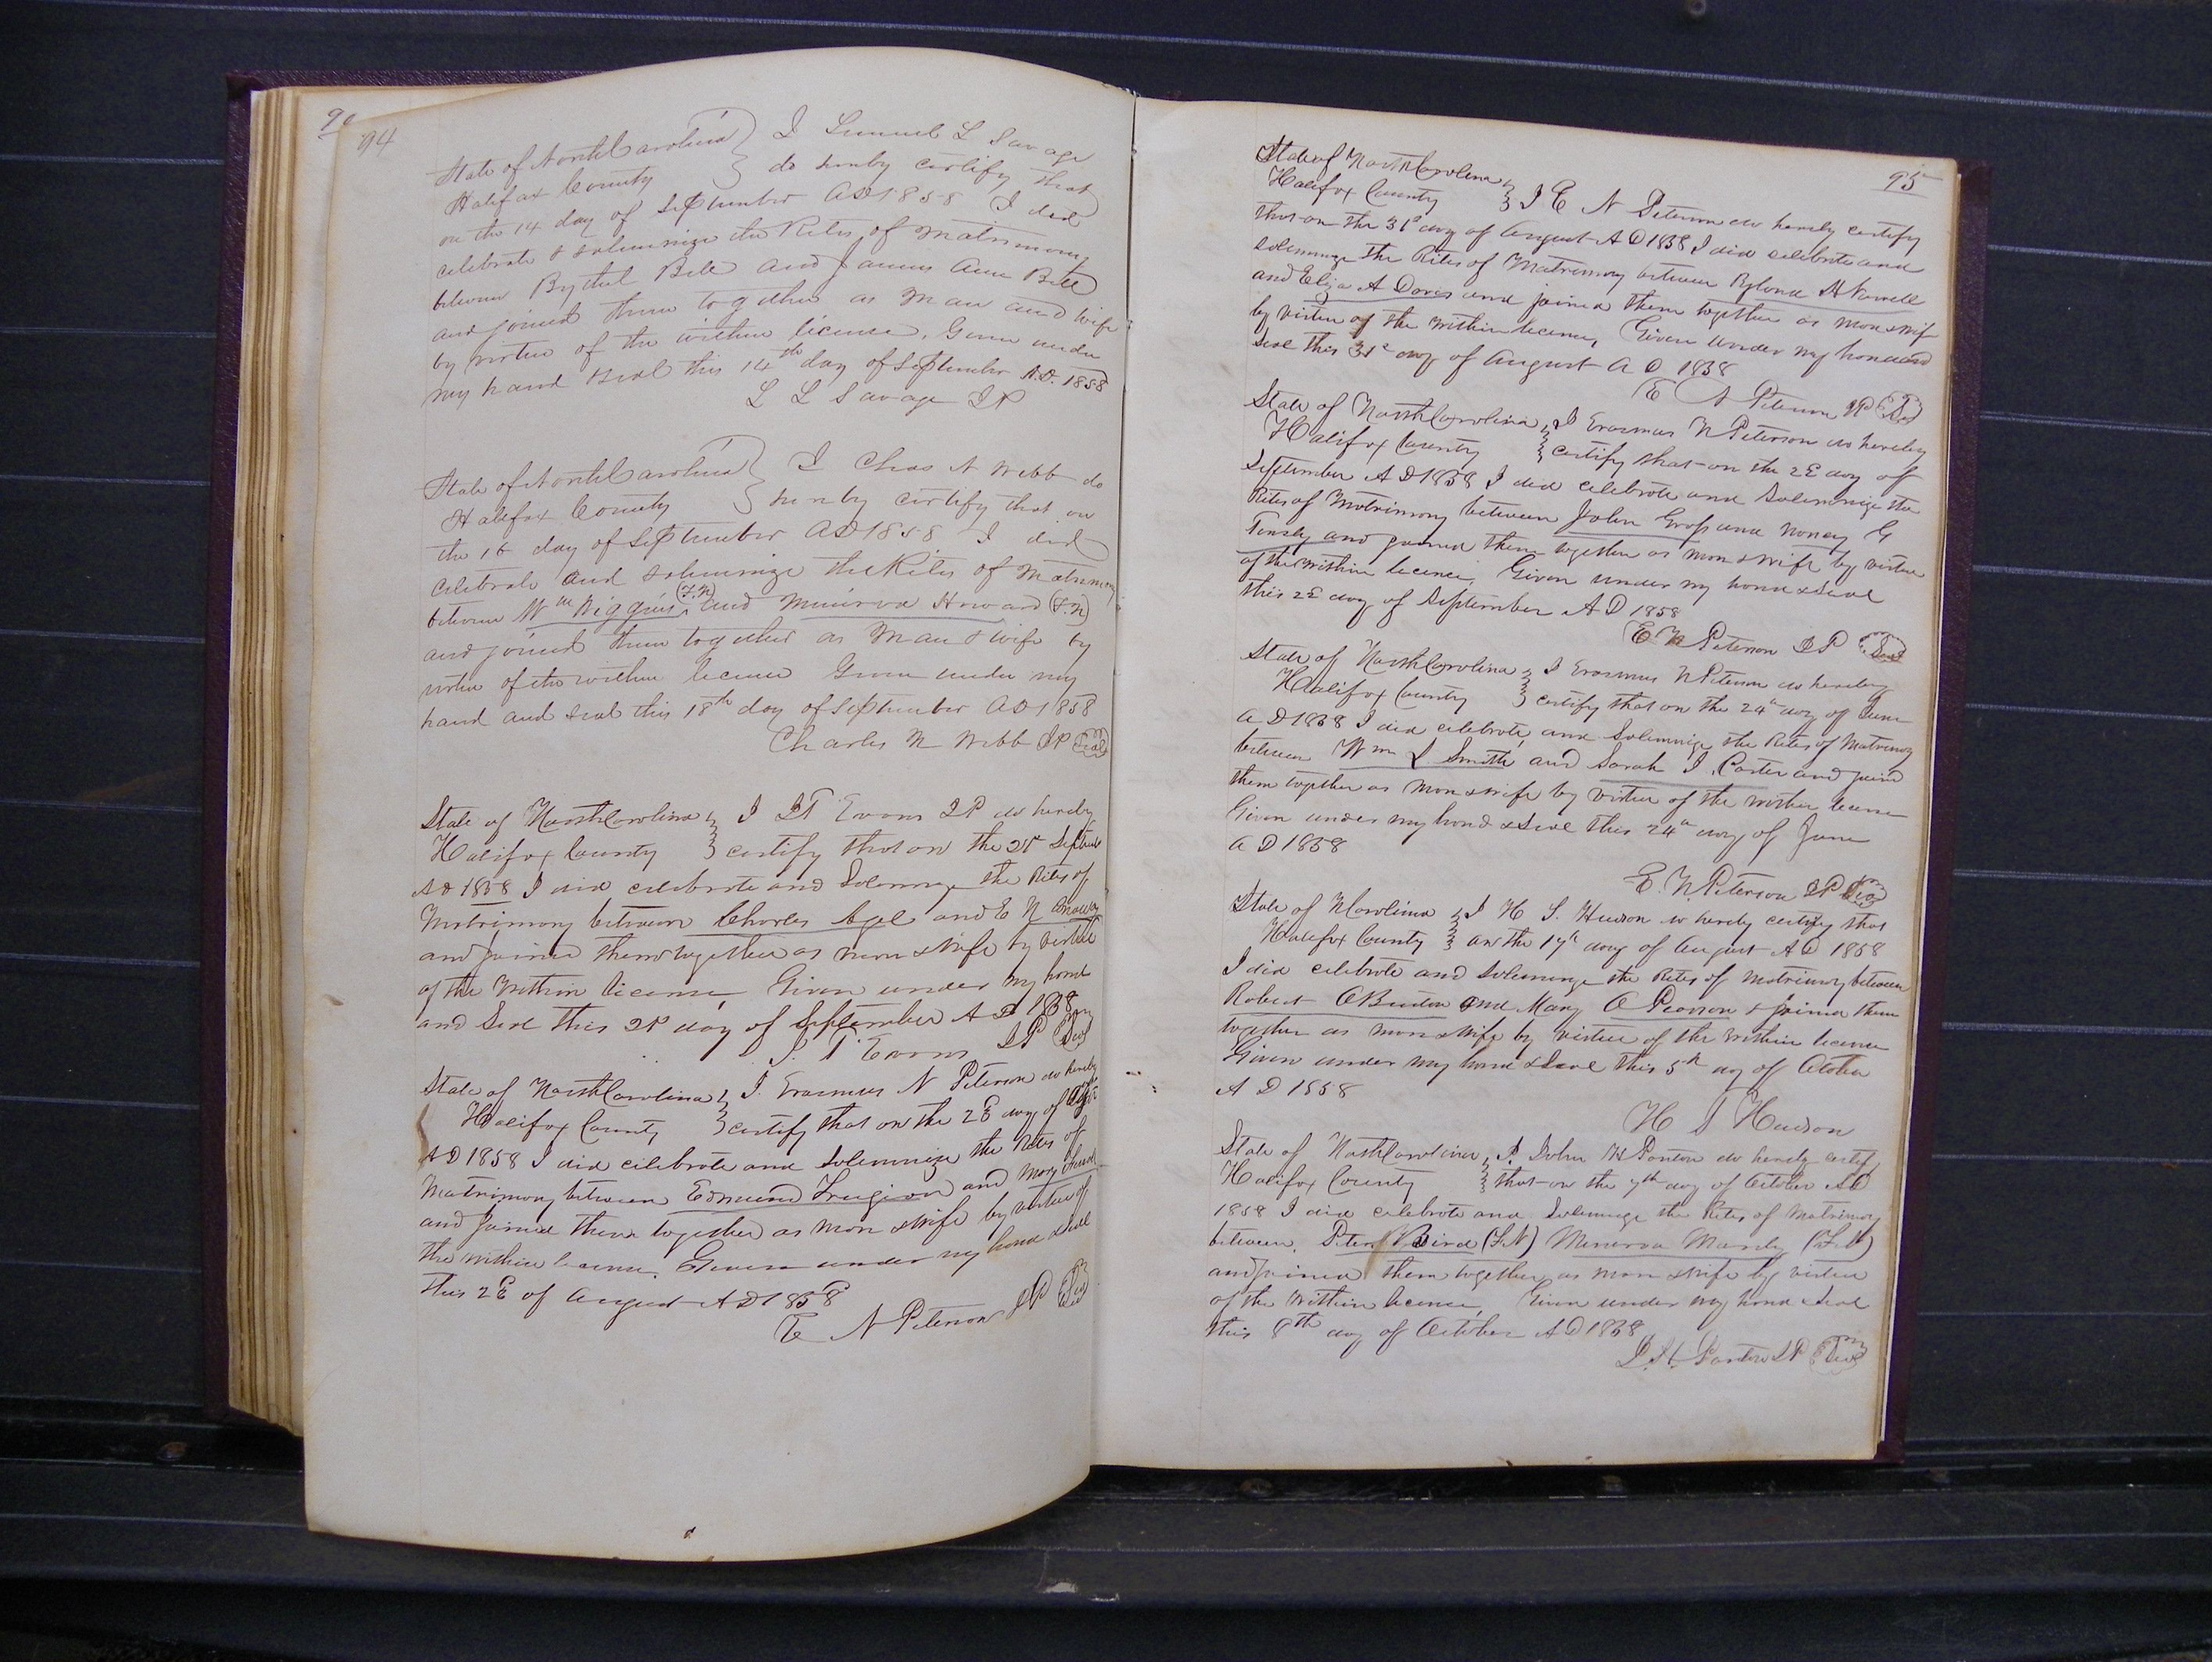 90
94
State of North Carolina } I Lemuel L Savage
Halifax County } do hereby certify that
on the 14 day of September AD 1858 I did
celebrate & solemnize the Rites of Matrimony
between Bythal Bell and James Ann Bell
and joined them together as Man and Wife
by virtue of the within license. Given under
my hand & seal this 14th day of September A.D. 1858
L L Savage JP
State of North Carolina } I Chas N Webb do
Halifax County } hereby certify that on
the 16 day of September AD 1858 I did
celebrate and solemnize the Rites of Matrimony
between Wm Wiggins (F.N) and Minerva Howard (F.N)
and joined them together as Man & wife by
virtue of the within license Given under my
hand and seal this 18th day of September AD 1858
Charles N Webb JP Seal
State of North Carolina } I J T Evans JP do hereby
Halifax County } certify that on the 21st September
AD 1858 I did celebrate and Solemnize the Rites of
Matrimony between Charles and E N
and joined them together as man & wife by virtue
of the within license, Given under my hand
and Seal this 21st day of September AD 1858
J. T Evans JP Seal
State of North Carolina } I Erasmus N Peterson do hereby
Halifax County } certify that on the 28 day of
AD 1858 I did celebrate and solemnize the Rites of
Matrimony between Edmund and Mary
and joined them together as man & wife by virtue of
the within license. Given under my hand & seal
this 28 of August AD 1858
E N Peterson JP Seal
95
State of North Carolina }
Halifax County } I E N Peterson do hereby certify
that on the 31st day of August AD 1858 I did celebrate and
solemnize the Rites of Matrimony between Ryland H Harrell
and Eliza A Davis and joined them together as man & wife
by virtue of the within license, Given under my hand and
seal this 31st day of August A D 1858
E N Peterson JP Seal
State of North Carolina } I Erasmus N Peterson do hereby
Halifax County } certify that on the 28 day of
September AD 1858 I did celebrate and Solemnize the
Rites of Matrimony between John Gross and Nancy G
and joined them together as man & wife by virtue
of the within license, Given under my hand & seal
this 28 day of September AD 1858
E N Peterson JP Seal
State of North Carolina } I Erasmus N Peterson do hereby
Halifax County } certify that on the 24th day of June
A D 1858 I did celebrate and Solemnize the Rites of Matrimony
between Wm L Smith and Sarah J. Carter and joined
them together as man & wife by virtue of the within license
Given under my hand & seal this 24th day of June
A D 1858
E. N Peterson JP Seal
State of N Carolina } I H S. Hudson do hereby certify that
Halifax County } on the 17th day of August AD 1858
I did celebrate and solemnize the Rites of Matrimony between
Robert O Burton and Mary O Pearson & joined them
together as man & wife by virtue of the within license
Given under my hand & seal this 5th day of October
A D 1858
H S Hudson
State of North Carolina } I. John H Ponton do hereby certify
Halifax County } that on the 7th day of October AD
1858 I did celebrate and Solemnize the Rites of Matrimony
between Peter Baird (F.N) Minerva Manly (F.N)
and joined them together as man & wife by virtue
of the within license, Given under my hand & seal
this 8th day of October AD 1858
J. H. Ponton JP Seal